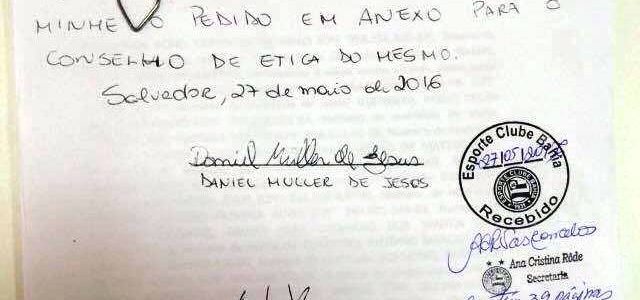 MINHE O PEDIDO EM ANEXO PARA O
CONSELHO DE ETICA DO MESMO.
Salvador, 27 de maio de 2016
Daniel Muller de Jesus
DANIEL MULLER DE JESUS
Esporte Clube Bahia
27/05/2016
Recebido
Ana Cristina Rôde
Secretaria
39 páginas